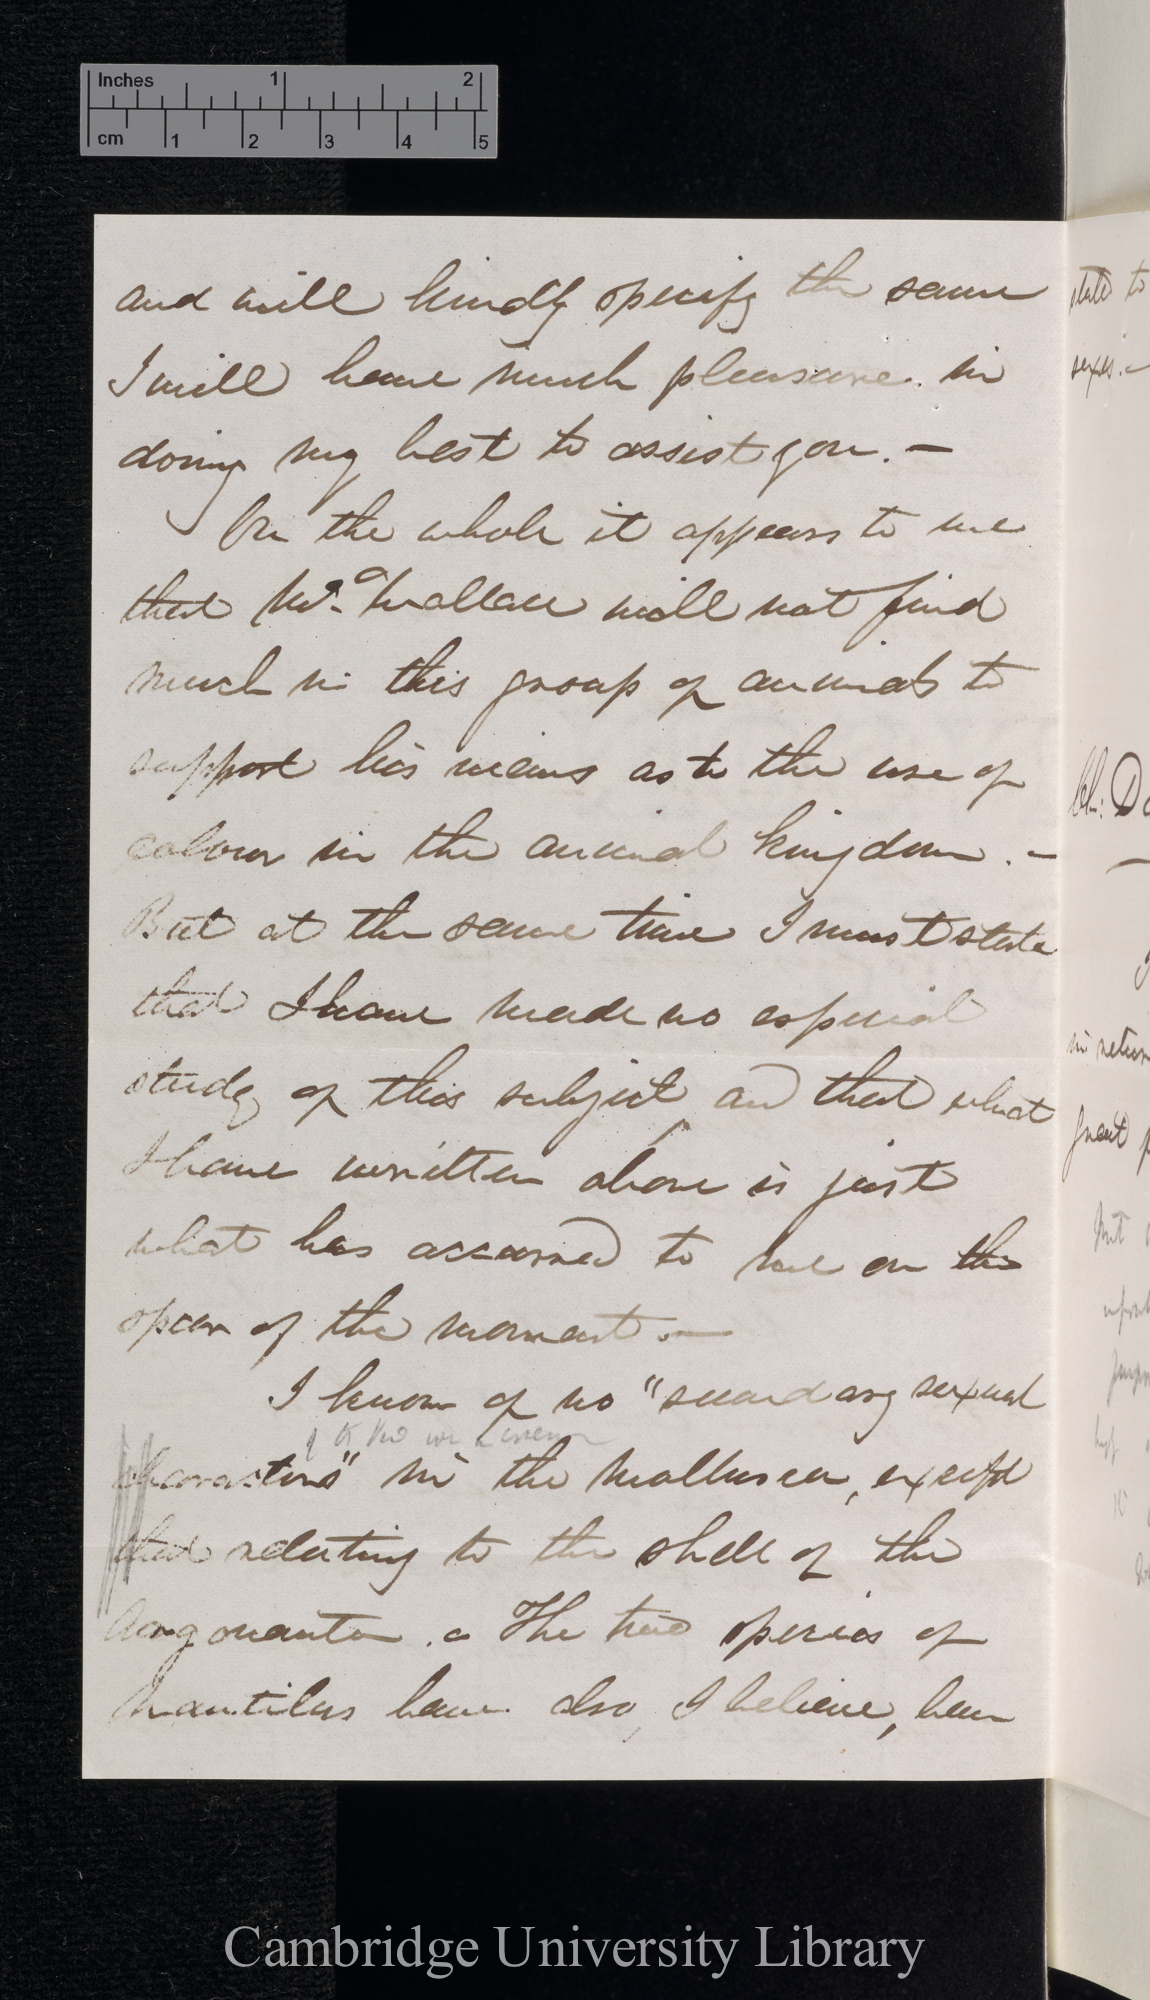 Inches 1 2
cm 1 2 3 4 5
and will kindly specify the same
I will have much pleasure in
doing my best to assist you. —
On the whole it appears to me
that Mr. Wallace will not find
much in this group of animals to
support his views as to the use of
colour in the animal kingdom. —
But at the same time I must state
that I have made no especial
study of this subject and that what
I have written above is just
what has occurred to me on the
spur of the moment. —
I know of no "secondary sexual
characters" in the Mollusca, except
that relating to the shell of the
Argonauta. The two species of
Nautilus have also, I believe, been
state to
sexes. —
in return
great
Cambridge University Library